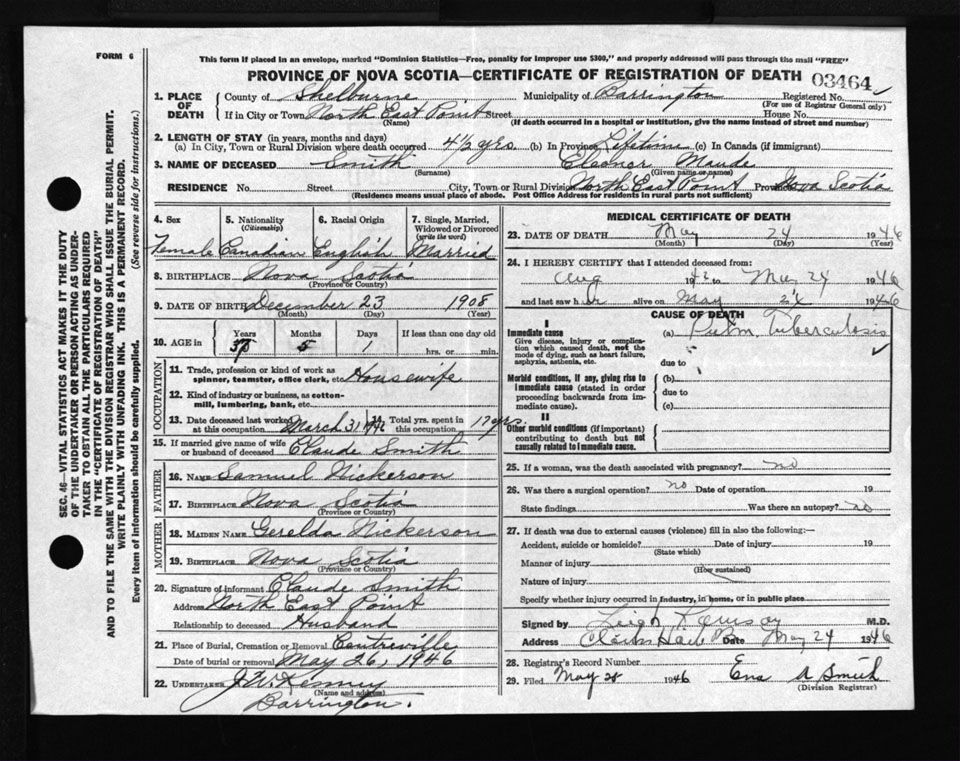 FORM 6
This form if placed in an envelope, marked "Dominion Statistics—Free, penalty for improper use $300," and properly addressed will pass through the mail "FREE"
PROVINCE OF NOVA SCOTIA—CERTIFICATE OF REGISTRATION OF DEATH 03464
1. PLACE OF DEATH
County of Shelburne Municipality of Barrington Registered No.
(For use of Registrar General only)
If in City or Town North East Point Street House No.
(Name) (If death occurred in a hospital or institution, give the name instead of street and number)
2. LENGTH OF STAY (in years, months and days)
(a) In City, Town or Rural Division where death occurred 4½ yrs. (b) In Province Lifetime (c) In Canada (if immigrant)
3. NAME OF DECEASED Smith Eleanor Maude
(Surname) (Given name or names)
RESIDENCE No. Street City, Town or Rural Division North East Point Province Nova Scotia
(Residence means usual place of abode. Post Office Address for residents in rural parts not sufficient)
4. Sex Female
5. Nationality (Citizenship) Canadian
6. Racial Origin English
7. Single, Married, Widowed or Divorced (write the word) Married
8. BIRTHPLACE Nova Scotia
(Province or Country)
9. DATE OF BIRTH December 23 1908
(Month) (Day) (Year)
10. AGE in Years Months Days If less than one day old
5 1 hrs. or min.
OCCUPATION
11. Trade, profession or kind of work as spinner, teamster, office clerk, etc. Housewife
12. Kind of industry or business, as cotton-mill, lumbering, bank, etc.
13. Date deceased last worked at this occupation March 31 1946 Total yrs. spent in this occupation 17 yrs.
15. If married give name of wife or husband of deceased Claude Smith
FATHER
16. NAME Samuel Nickerson
17. BIRTHPLACE Nova Scotia
(Province or Country)
MOTHER
18. MAIDEN NAME Gerelda Nickerson
19. BIRTHPLACE Nova Scotia
(Province or Country)
20. Signature of informant Claude Smith
Address North East Point
Relationship to deceased Husband
21. Place of Burial, Cremation or Removal Centreville
Date of burial or removal May 26, 1946
22. UNDERTAKER J. W. Kenney
(Name and address)
Barrington.
MEDICAL CERTIFICATE OF DEATH
23. DATE OF DEATH May 24 1946
(Month) (Day) (Year)
24. I HEREBY CERTIFY that I attended deceased from:
Aug 1942 to May 24 1946
and last saw her alive on May 1946
CAUSE OF DEATH
I
Immediate cause (a) Pulm Tuberculosis
Give disease, injury or complication which caused death, not the mode of dying, such as heart failure, asphyxia, asthenia, etc.
due to
Morbid conditions, if any, giving rise to immediate cause (stated in order proceeding backwards from immediate cause).
(b)
due to
(c)
II
Other morbid conditions (if important) contributing to death but not causally related to immediate cause.
25. If a woman, was the death associated with pregnancy? no
26. Was there a surgical operation? no Date of operation 19
State findings Was there an autopsy? no
27. If death was due to external causes (violence) fill in also the following:—
Accident, suicide or homicide? Date of injury 19
(State which)
Manner of injury
(How sustained)
Nature of injury
Specify whether injury occurred in industry, in home, or in public place
Signed by M.D.
Address Date May 24 1946
28. Registrar's Record Number
29. Filed May 28 1946 Ena A Smith
(Division Registrar)
SEC. 46—VITAL STATISTICS ACT MAKES IT THE DUTY
OF THE UNDERTAKER OR PERSON ACTING AS UNDER-
TAKER TO OBTAIN ALL THE PARTICULARS REQUIRED
IN THE "CERTIFICATE OF REGISTRATION OF DEATH"
AND TO FILE THE SAME WITH THE DIVISION REGISTRAR WHO SHALL ISSUE THE BURIAL PERMIT.
WRITE PLAINLY WITH UNFADING INK. THIS IS A PERMANENT RECORD.
Every item of information should be carefully supplied. (See reverse side for instructions.)